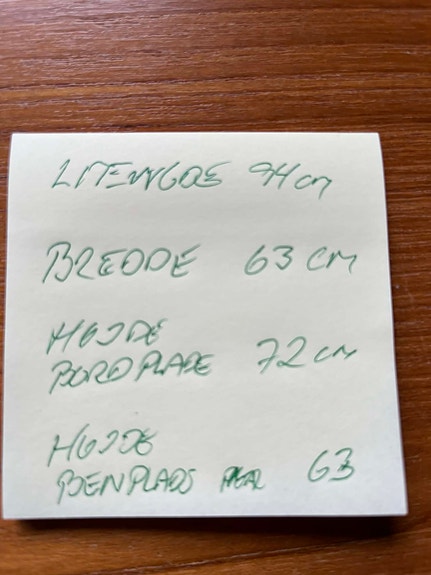 LÆNGDE 94 cm
BREDDE 63 cm
HØJDE
BORDPLADE 72 cm
HØJDE
BENPLADS 63